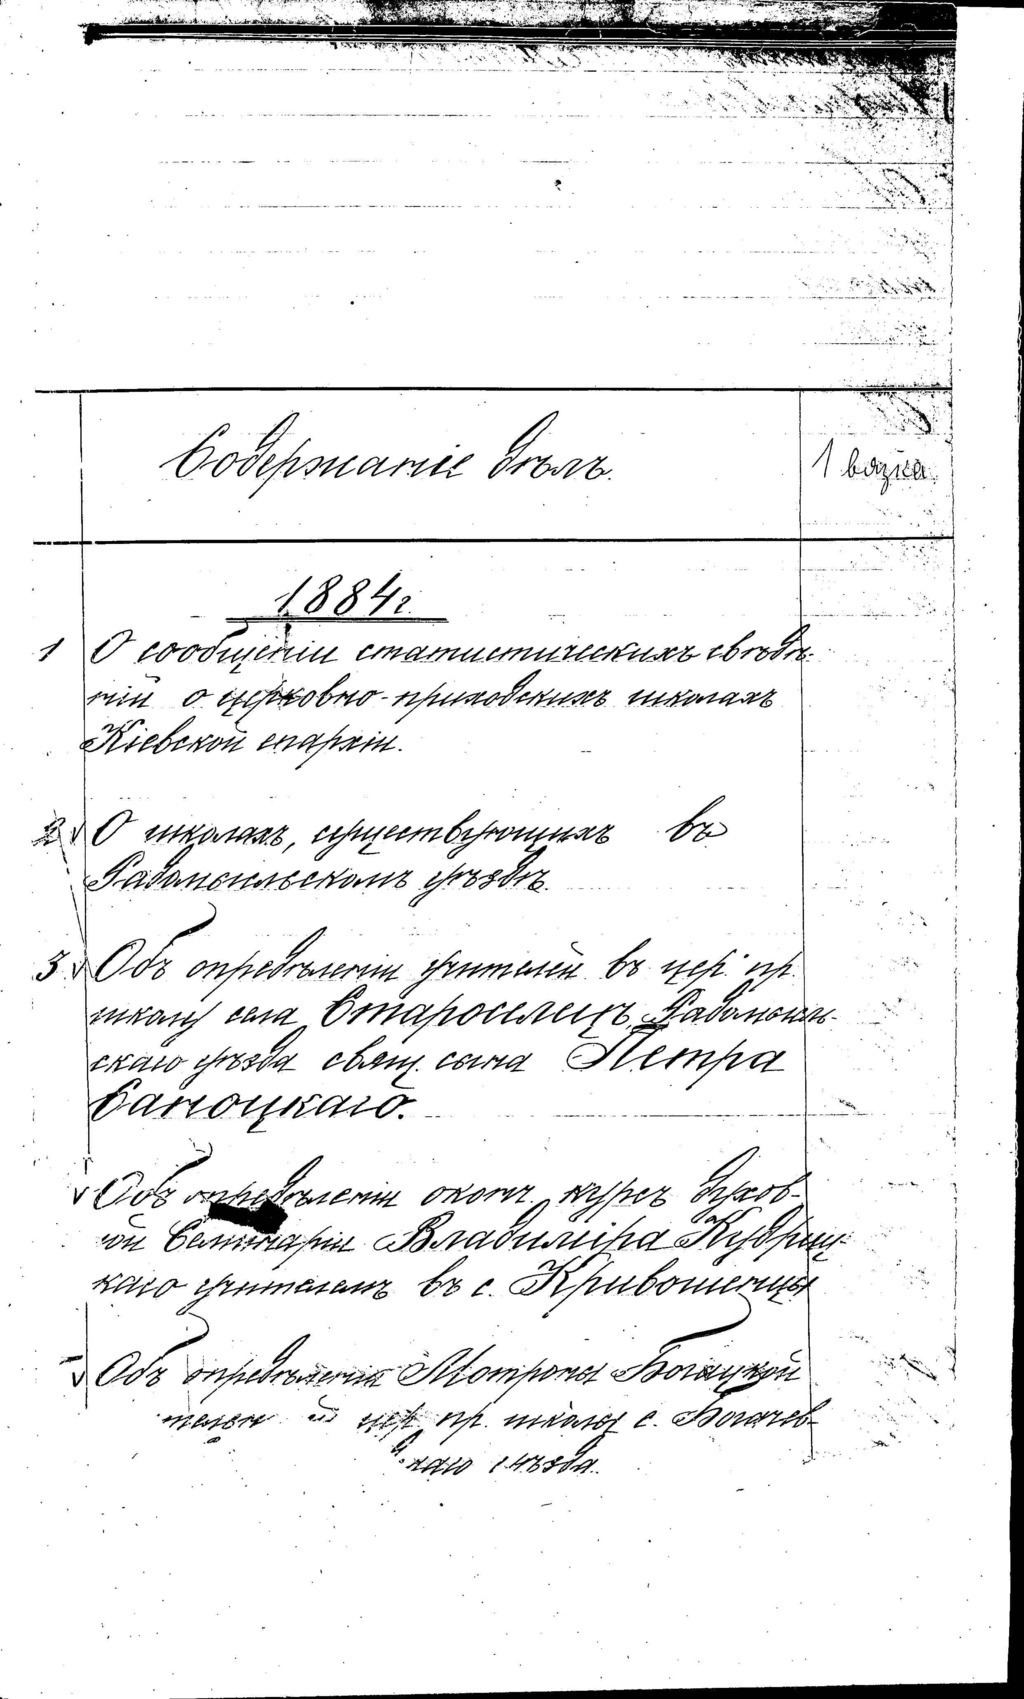 Содержаніе дѣлъ.
1 вязка
1884 г.
1 О сообщеніи статистическихъ свѣдѣ-
ній о церковно-приходскихъ школахъ
Кіевской епархіи.
2 О школахъ, существующихъ въ
Радомысльскомъ уѣздѣ.
3 Объ опредѣленіи учителемъ въ цер. пр.
школу села Староселецъ, Радомысль-
скаго уѣзда свящ. сына Петра
Саноцкаго.
Объ опредѣленіи оконч. курсъ духов-
ой Семинаріи Владиміра Кудриц-
каго учителемъ въ с. Кривошеинцы
Объ опредѣленіи Мотроны Богацкой
цер. пр. школы с. Богачев-
каго уѣзда.